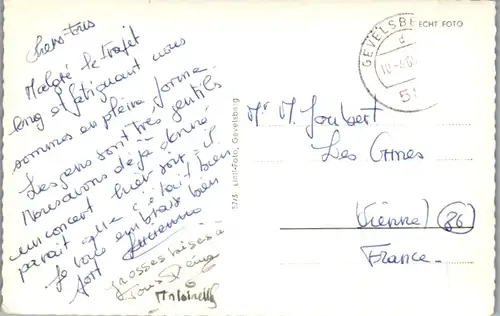 Chers tous
Malgré le trajet
long et fatignant nous
sommes en pleine forme.
Les gens sont très gentils
Nous avons déjà donné
un concert hier soir = il
parait que c'était bien
Je vous embrasse bien
fort
grosses baises à
Tous
Antoinette
5773 Linli-Foto, Gevelsberg
ECHT FOTO
GEVELSBE
Mr M. Joubert
Les Ormes
(Vienne) (86)
France.